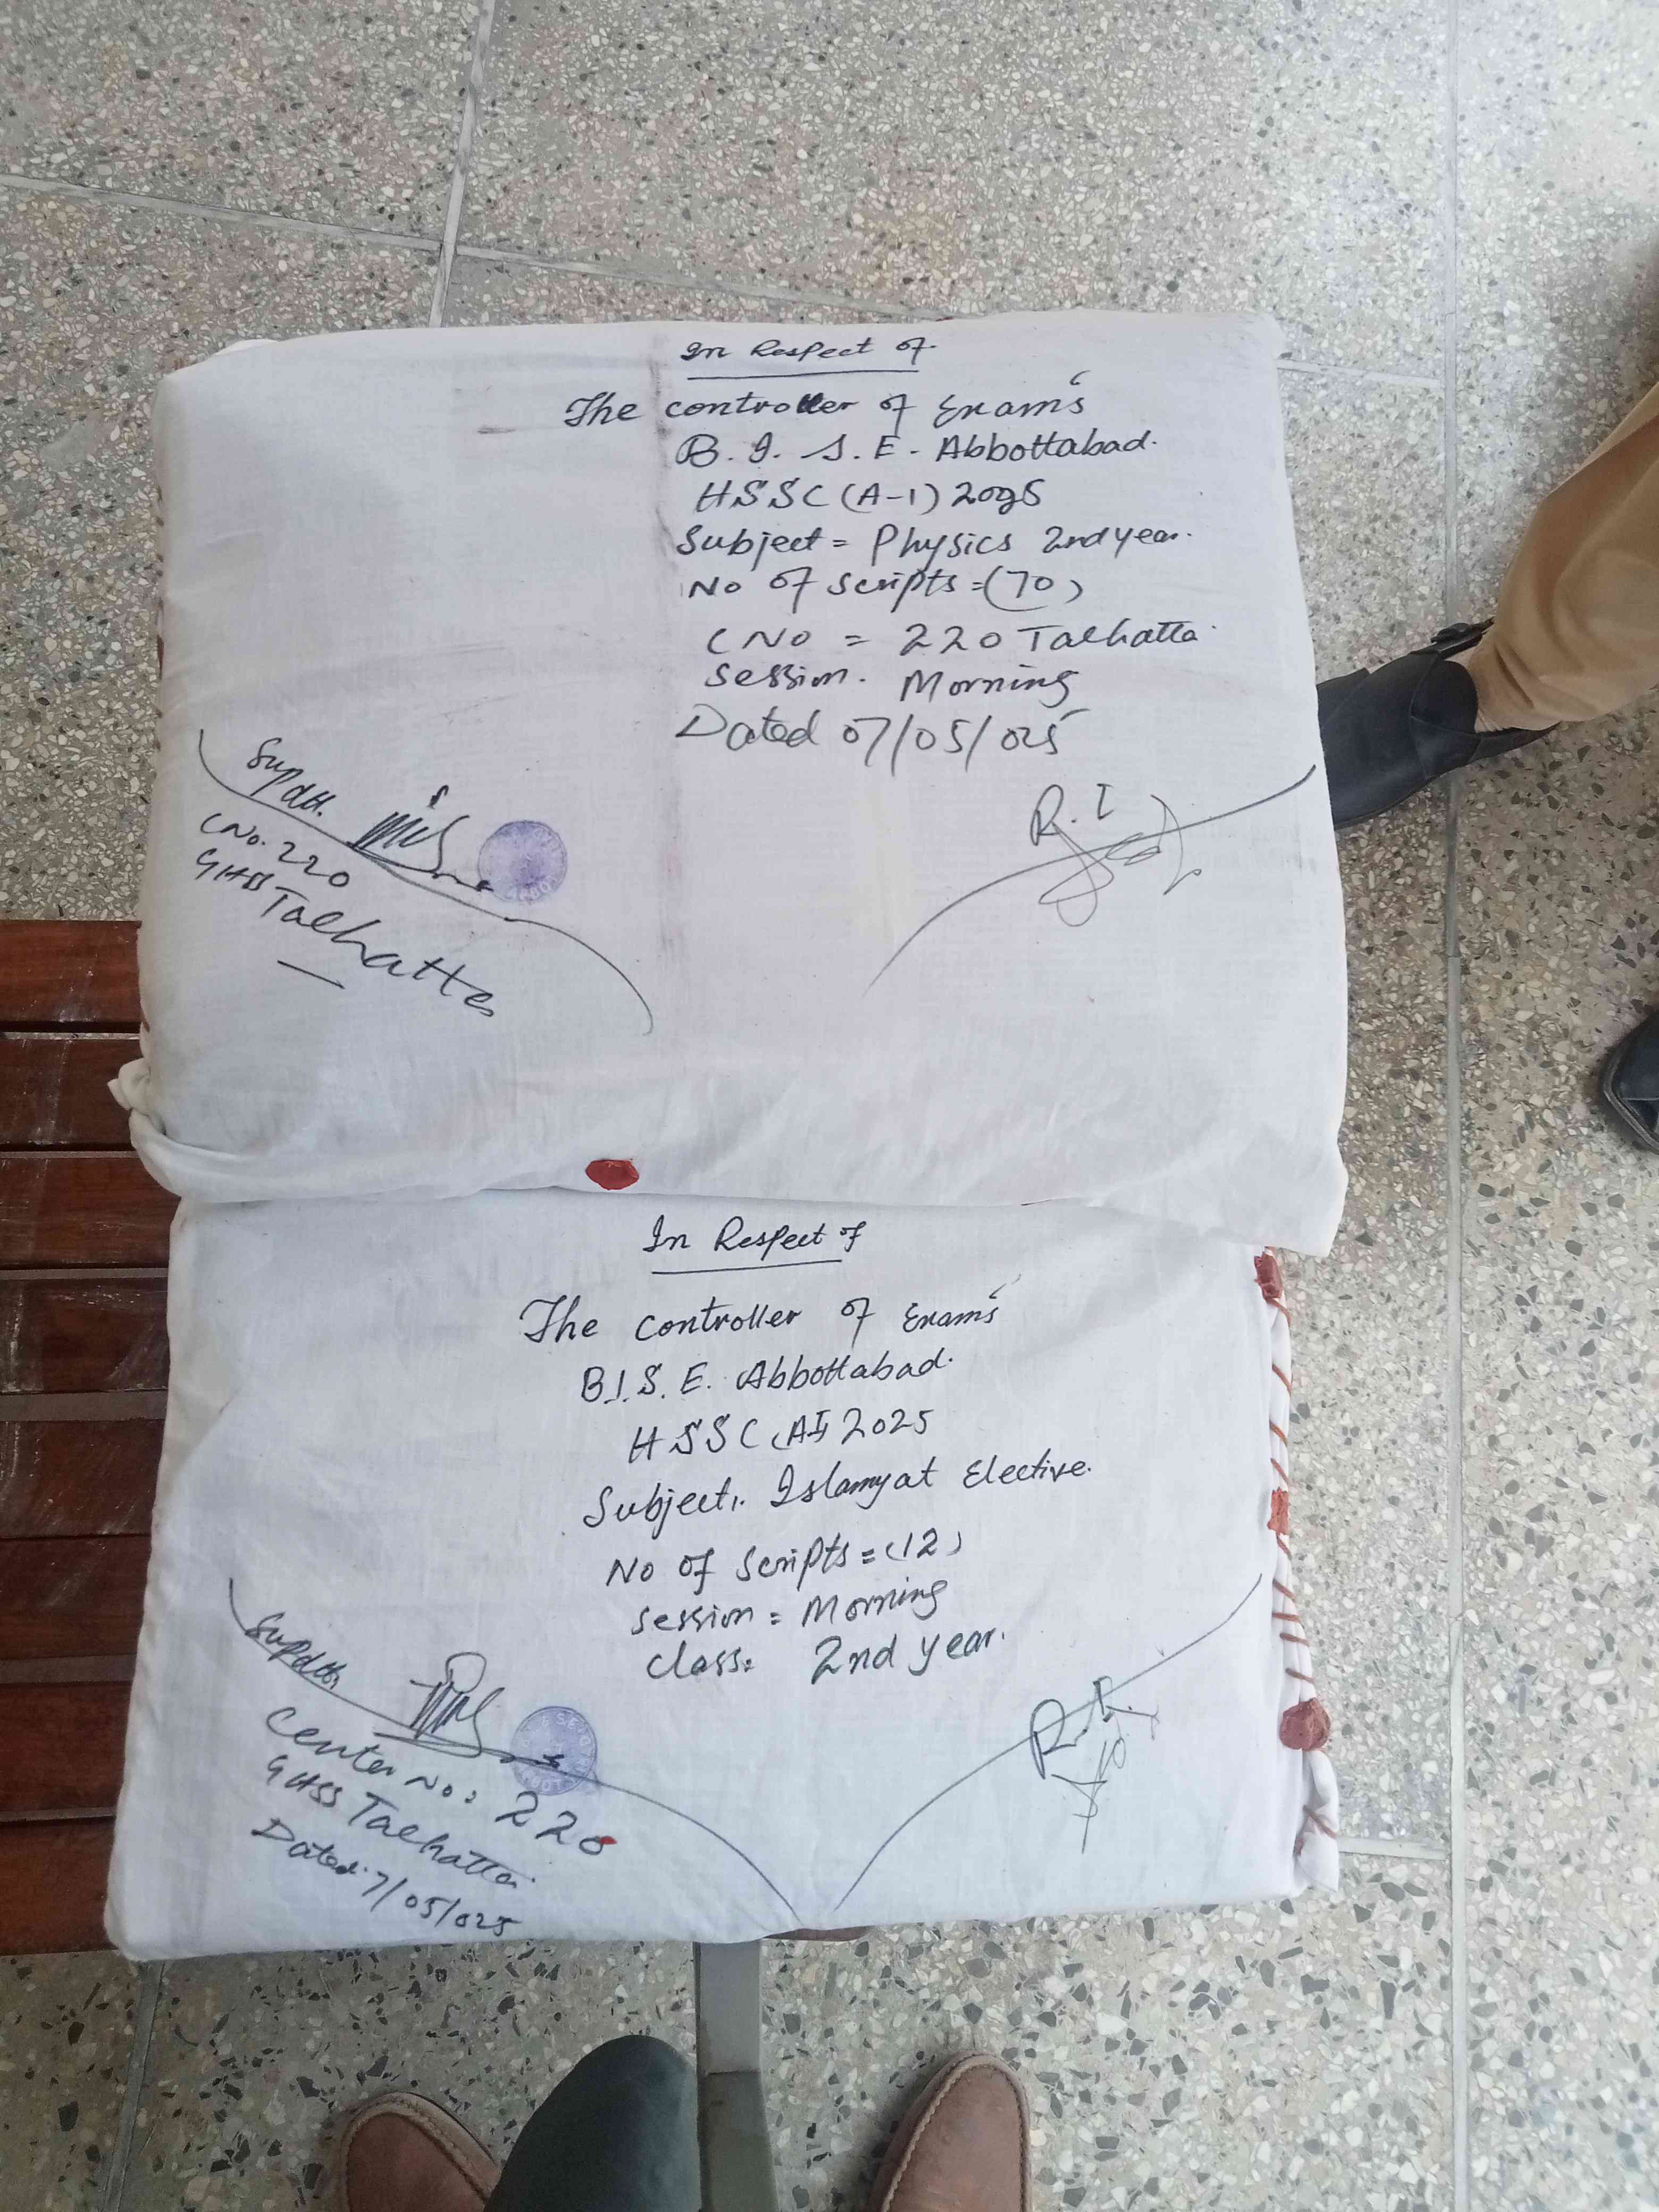 In Respect of
The controller of Exam's
B. I. S. E - Abbottabad.
HSSC (A-1) 2025
Subject = Physics 2nd year.
No of scripts = (70)
C No = 220 Talhatta
Session. Morning
Dated 07/05/025
Supdtt.
C No. 220
GHSS Talhatta
R. I
In Respect of
The controller of Exam's
B.I.S.E. Abbottabad.
HSSC (AI) 2025
Subject:. Islamyat Elective.
No of scripts = (12)
session = Morning
class: 2nd year.
Supdtt,
Center No: 220
GHSS Talhatta
Dated. 7/05/025
R. I.